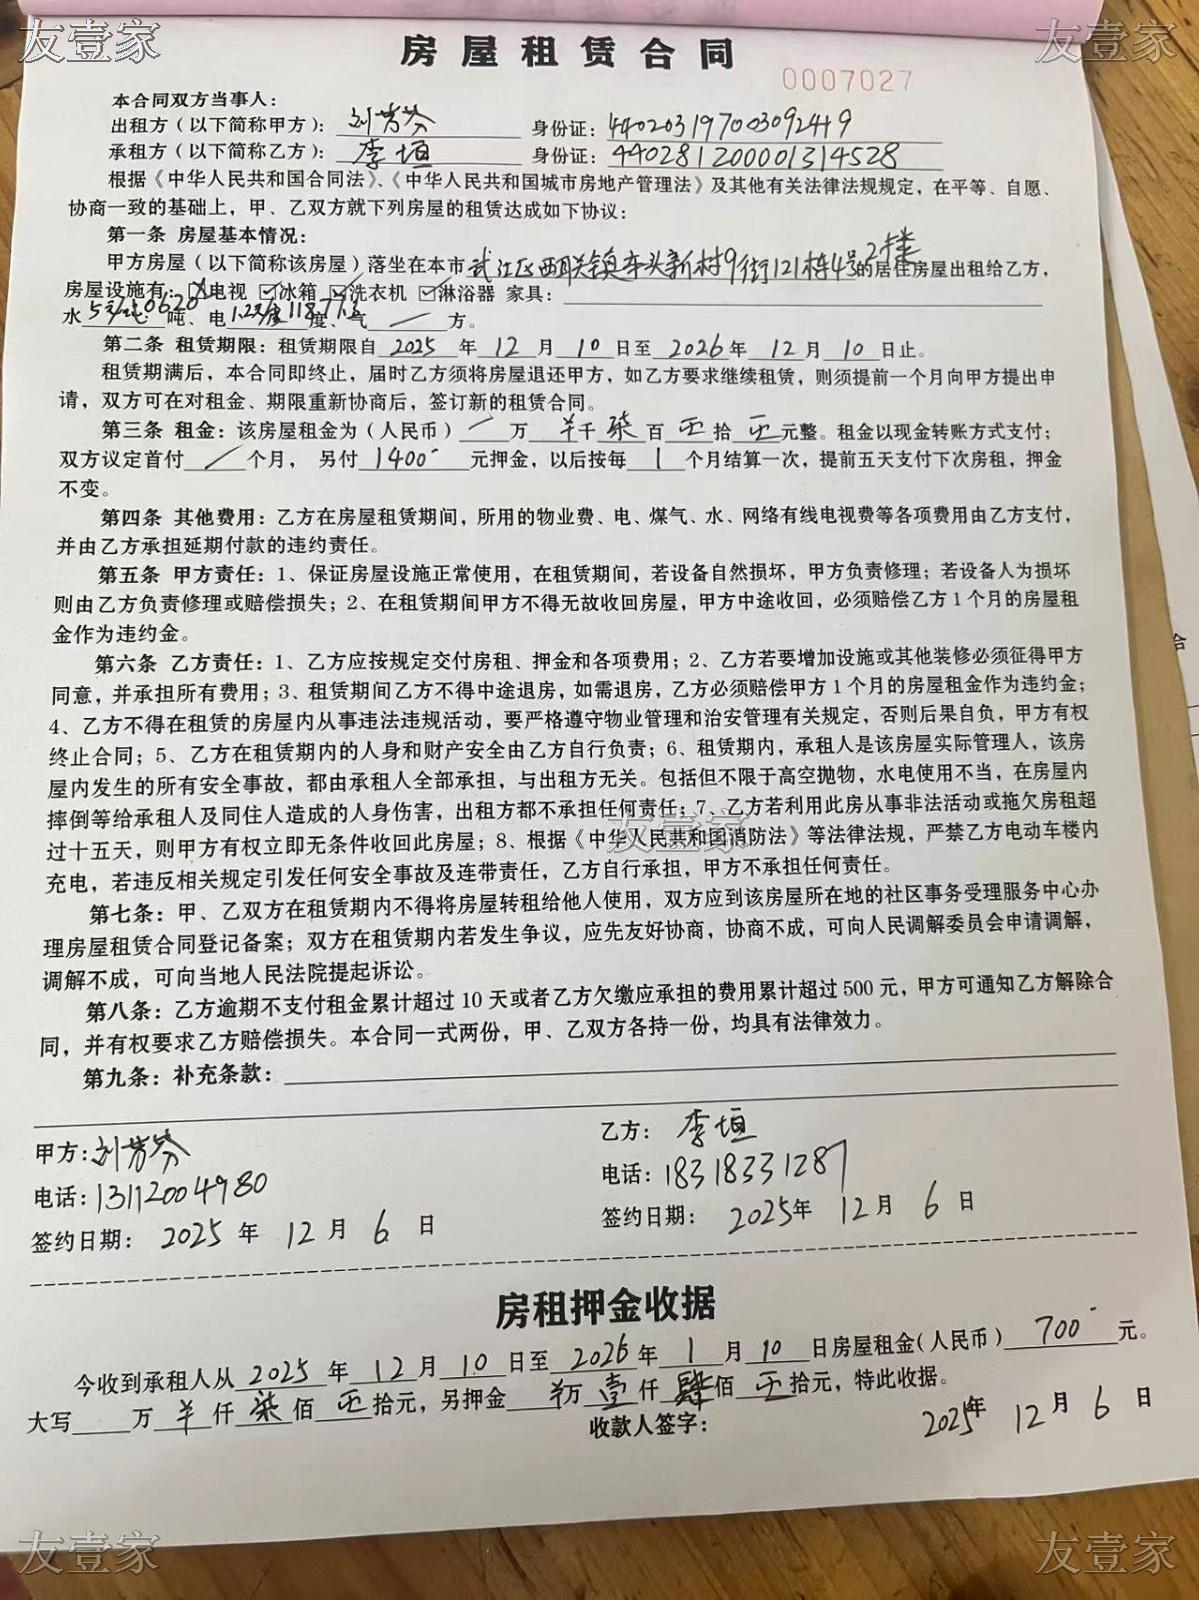 友壹家
友壹家
房屋租赁合同
0007027
本合同双方当事人：
出租方（以下简称甲方）：刘芳芬 身份证：440203197003092449
承租方（以下简称乙方）：李垣 身份证：440281200001314528
根据《中华人民共和国合同法》、《中华人民共和国城市房地产管理法》及其他有关法律法规规定，在平等、自愿、
协商一致的基础上，甲、乙双方就下列房屋的租赁达成如下协议：
第一条 房屋基本情况：
甲方房屋（以下简称该房屋）落坐在本市武江区西联镇车头新村9街121栋4号2楼的居住房屋出租给乙方，
房屋设施有：☒电视 ☑冰箱 ☑洗衣机 ☑淋浴器 家具：
水5元/吨0620吨、电1.2元/度11877.3度、气/方。
第二条 租赁期限：租赁期限自2025年12月10日至2026年12月10日止。
租赁期满后，本合同即终止，届时乙方须将房屋退还甲方，如乙方要求继续租赁，则须提前一个月向甲方提出申
请，双方可在对租金、期限重新协商后，签订新的租赁合同。
第三条 租金：该房屋租金为（人民币）/万 羊千 柒百 正拾 正元整。租金以现金转账方式支付；
双方议定首付/个月，另付1400元押金，以后按每1个月结算一次，提前五天支付下次房租，押金
不变。
第四条 其他费用：乙方在房屋租赁期间，所用的物业费、电、煤气、水、网络有线电视费等各项费用由乙方支付，
并由乙方承担延期付款的违约责任。
第五条 甲方责任：1、保证房屋设施正常使用，在租赁期间，若设备自然损坏，甲方负责修理；若设备人为损坏
则由乙方负责修理或赔偿损失；2、在租赁期间甲方不得无故收回房屋，甲方中途收回，必须赔偿乙方1个月的房屋租
金作为违约金。
第六条 乙方责任：1、乙方应按规定交付房租、押金和各项费用；2、乙方若要增加设施或其他装修必须征得甲方
同意，并承担所有费用；3、租赁期间乙方不得中途退房，如需退房，乙方必须赔偿甲方1个月的房屋租金作为违约金；
4、乙方不得在租赁的房屋内从事违法违规活动，要严格遵守物业管理和治安管理有关规定，否则后果自负，甲方有权
终止合同；5、乙方在租赁期内的人身和财产安全由乙方自行负责；6、租赁期内，承租人是该房屋实际管理人，该房
屋内发生的所有安全事故，都由承租人全部承担，与出租方无关。包括但不限于高空抛物，水电使用不当，在房屋内
摔倒等给承租人及同住人造成的人身伤害，出租方都不承担任何责任；7、乙方若利用此房从事非法活动或拖欠房租超
过十五天，则甲方有权立即无条件收回此房屋；8、根据《中华人民共和国消防法》等法律法规，严禁乙方电动车楼内
友壹家
充电，若违反相关规定引发任何安全事故及连带责任，乙方自行承担，甲方不承担任何责任。
第七条：甲、乙双方在租赁期内不得将房屋转租给他人使用，双方应到该房屋所在地的社区事务受理服务中心办
理房屋租赁合同登记备案；双方在租赁期内若发生争议，应先友好协商，协商不成，可向人民调解委员会申请调解，
调解不成，可向当地人民法院提起诉讼。
第八条：乙方逾期不支付租金累计超过10天或者乙方欠缴应承担的费用累计超过500元，甲方可通知乙方解除合
同，并有权要求乙方赔偿损失。本合同一式两份，甲、乙双方各持一份，均具有法律效力。
第九条：补充条款：
甲方：刘芳芬 乙方：李垣
电话：13112004980 电话：18318331287
签约日期：2025年12月6日 签约日期：2025年12月6日
房租押金收据
今收到承租人从2025年12月10日至2026年1月10日房屋租金（人民币）700元。
大写 万羊仟柒佰正拾元，另押金羊万壹仟肆佰正拾元，特此收据。
收款人签字： 2025年12月6日
友壹家
友壹家